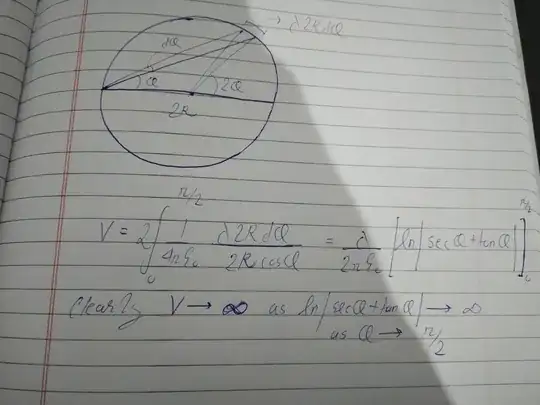 → λ2RdQ
dQ
Q
2Q
2R
V = 2 ∫₀^{π/2} 1/(4πε₀) λ2RdQ/(2RcosQ) = λ/(2πε₀) [ln|secQ+tanQ|]₀^{π/2}
Clearly V → ∞ as ln|secQ+tanQ| → ∞
as Q → π/2